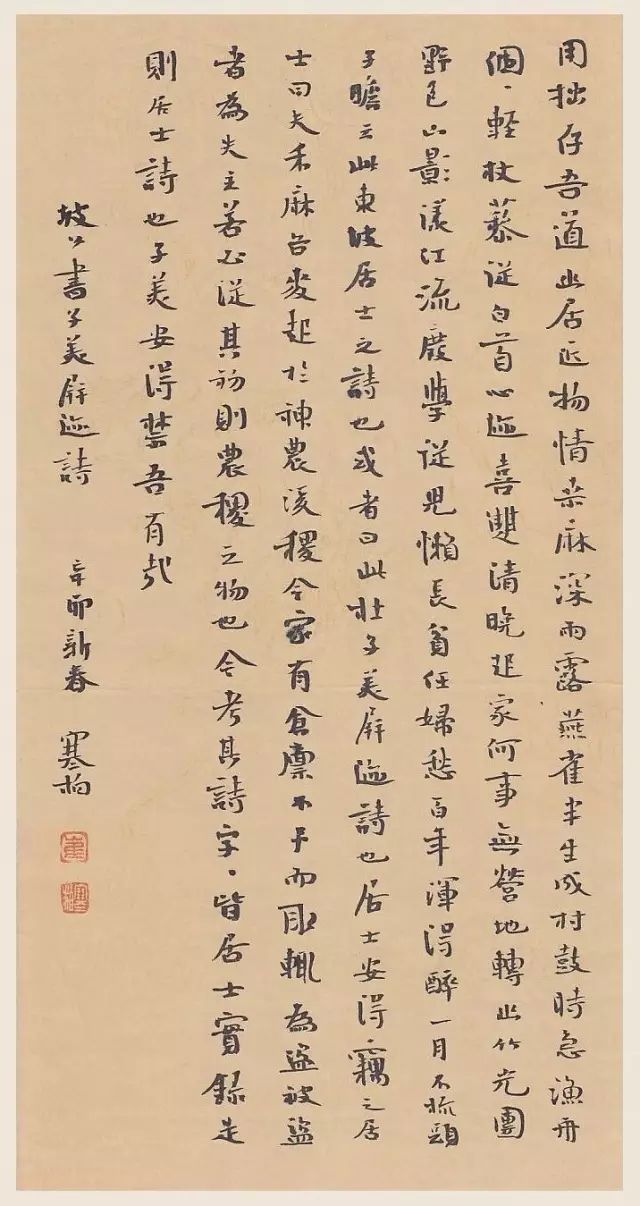 用拙存吾道出居近物情桒麻深雨露燕雀半生成村鼓時急漁舟
個〻輕杖藜從白首心迹喜雙清晚起家何事無營地轉出竹光團
野色山影漾江流廢學從兒懶長貧任婦愁百年渾得醉一月不梳頭
子瞻云此東坡居士之詩也或者曰此杜子美屏迹詩也居士安得竊之居
士曰夫禾麻谷麥起於神農後稷今家有倉廪不予而取輒為盜被盜
者為失主若必從其初則農稷之物也今考其詩字〻皆居士實錄是
則居士詩也子美安得禁吾有哉
坡公書子美屏迹詩 辛卯新春 寒柏